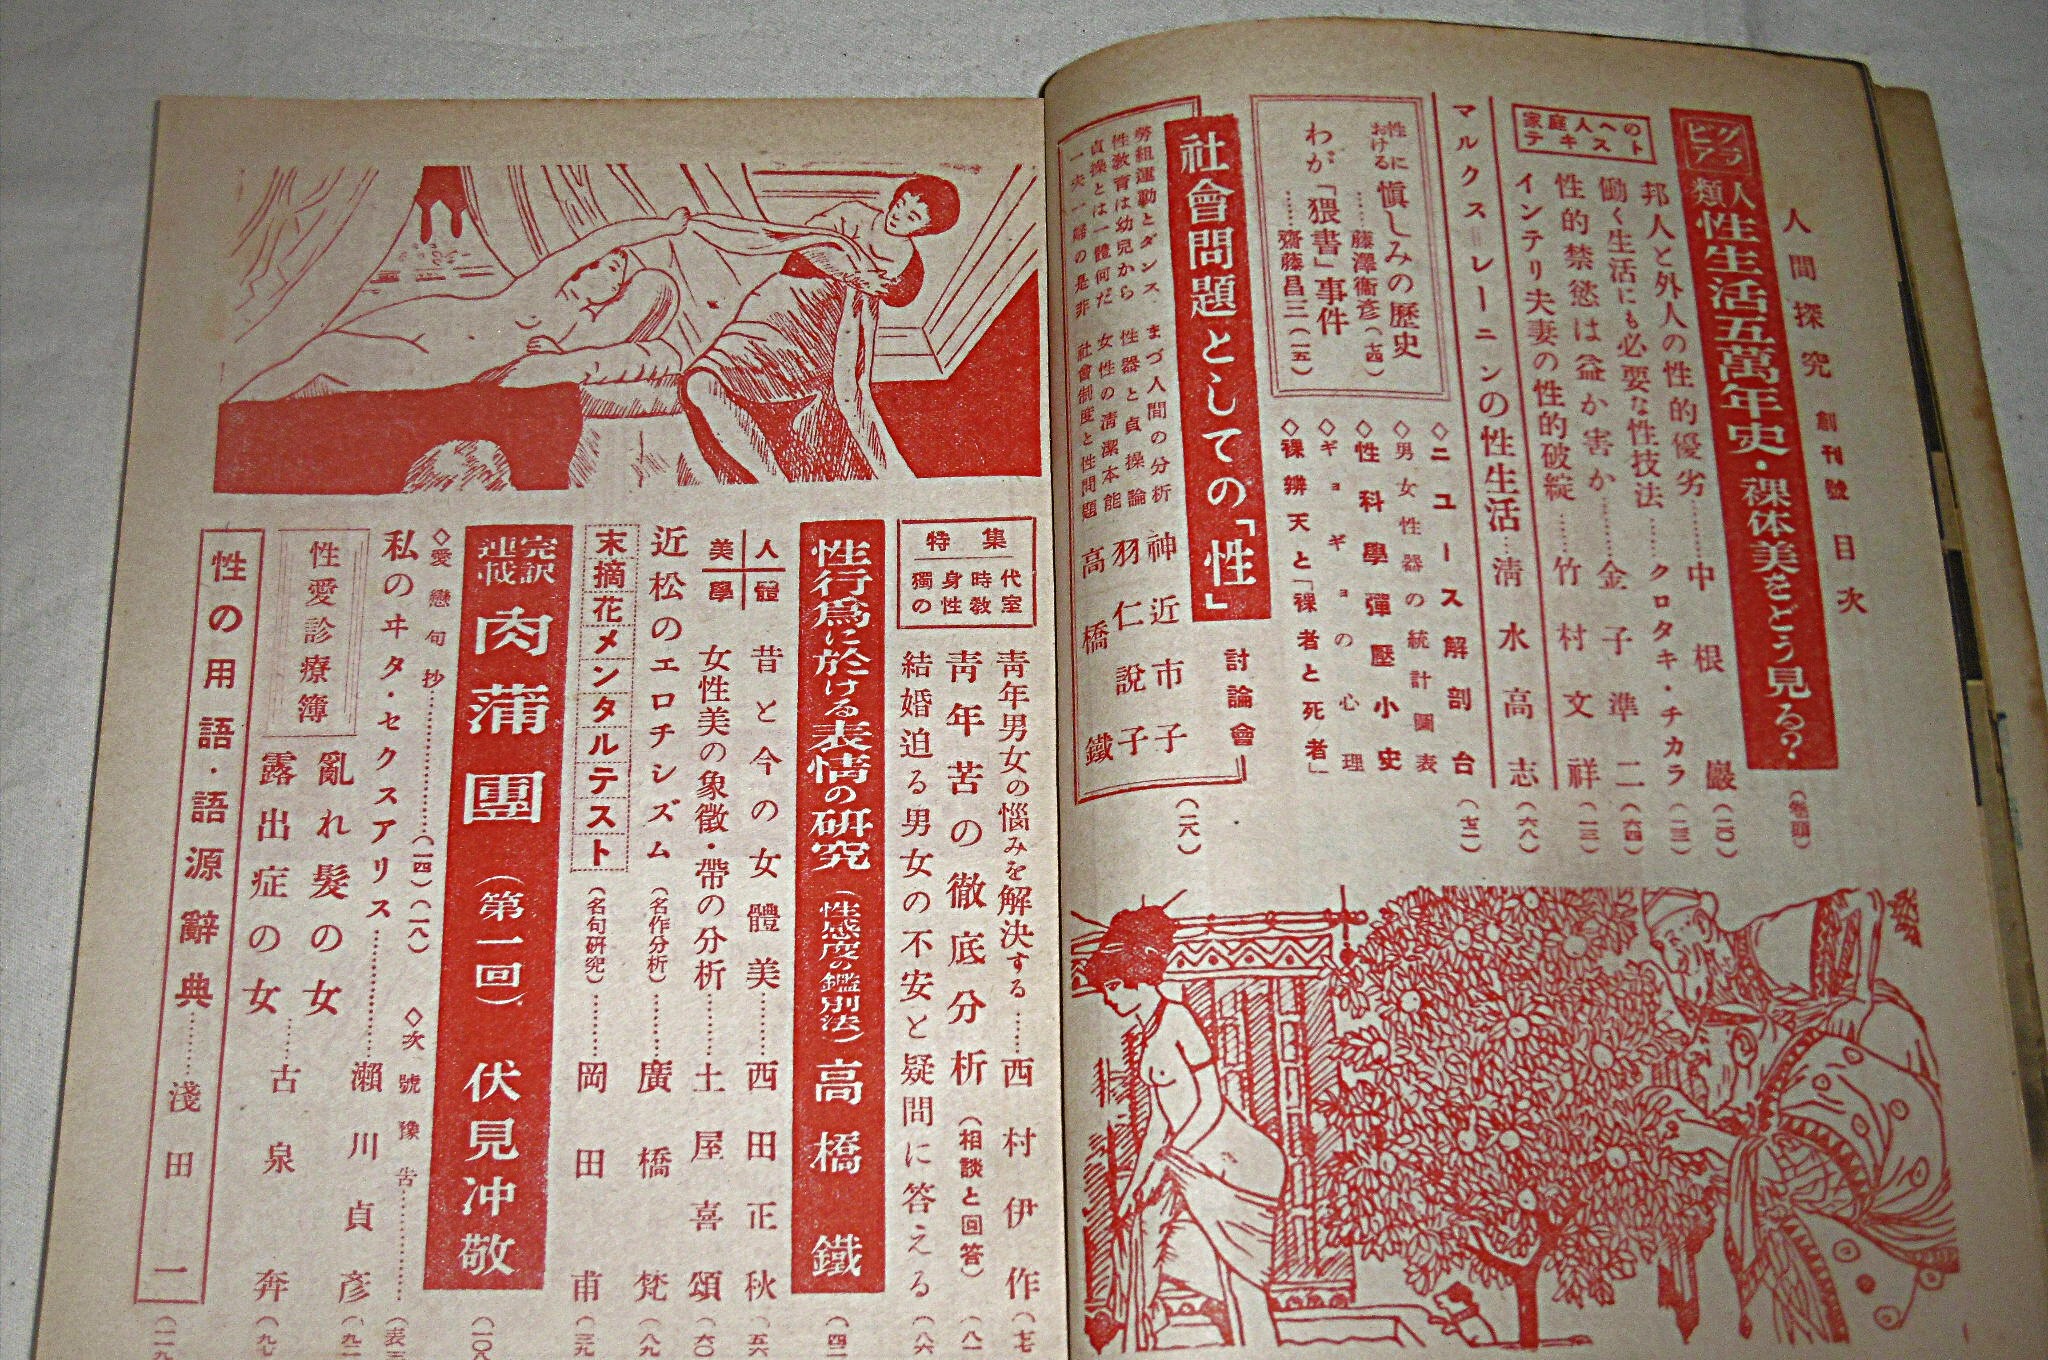 人間探究 創刊號 目次
グラビア
人類性生活五萬年史・裸体美をどう見る?(卷頭)
家庭人へのテキスト
邦人と外人の性的優劣……中根巖(一〇)
働く生活にも必要な性技法……クロタキ・チカラ(二三)
性的禁慾は益か害か……金子準二(六四)
インテリ夫妻の性的破綻……竹村文祥(一三)
マルクス=レーニンの性生活…淸水高志(六八)
性に於ける愼しみの歷史……藤澤衞彥(七四)
わが「猥書」事件……齋藤昌三(一五)
◇ニユース解剖台(七二)
◇男女性器の統計圖表
◇性科學彈壓小史
◇ギョギョの心理
◇裸辨天と「裸者と死者」
社會問題としての「性」 討論會(二八)
勞組運動とダンス まづ人間の分析
性敎育は幼兒から 性器と貞操論
貞操とは一體何だ 女性の淸潔本能
一夫一婦の是非 社會制度と性問題
神近市子
羽仁說子
高橋鐵
特集
獨身時代の性敎室
靑年男女の惱みを解決する……西村伊作(七七)
靑年苦の徹底分析(相談と回答)(八一)
結婚迫る男女の不安と疑問に答える(八六)
性行爲に於ける表情の硏究(性感度の鑑別法)高橋鐵(四二)
人體美學
昔と今の女體美……西田正秋(五六)
女性美の象徵・帶の分析……土屋喜頌(六〇)
近松のエロチシズム(名作分析)……廣橋梵(八九)
末摘花メンタルテスト(名句硏究)……岡田甫(三九)
完訳連載 肉蒲團(第一回) 伏見冲敬(一〇八)
◇愛戀句抄……(一四)(一八) ◇次號豫吿……(表三)
私のヰタ・セクスアリス……瀨川貞彥(九二)
性愛診療簿
亂れ髮の女
露出症の女……古泉奔(九七)
性の用語・語源辭典……淺田一(一一九)